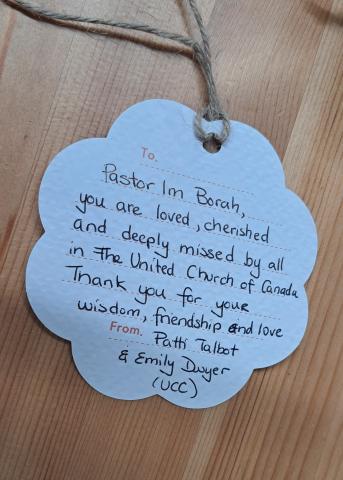 To.
Pastor Im Borah,
you are loved, cherished
and deeply missed by all
in The United Church of Canada
Thank you for your
wisdom, friendship and love
From. Patti Talbot
& Emily Dwyer
(UCC)